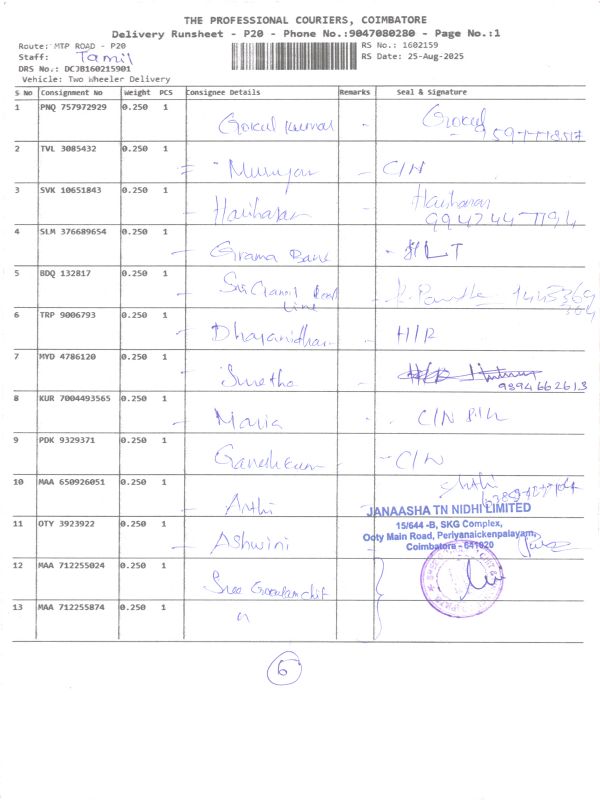 THE PROFESSIONAL COURIERS, COIMBATORE
Delivery Runsheet - P20 - Phone No.:9047080280 - Page No.:1
Route: MTP ROAD - P20 RS No.: 1602159
Staff: Tamil RS Date: 25-Aug-2025
DRS No.: DCJB160215901
Vehicle: Two Wheeler Delivery
S No Consignment No Weight PCS Consignee Details Remarks Seal & Signature
1 PNQ 757972929 0.250 1 Gokul Kumar Gokul
2 TVL 3085432 0.250 1 Murugan C/N
3 SVK 10651843 0.250 1 Hariharan Hariharan
9942744
4 SLM 376689654 0.250 1 Grama Bank
5 BDQ 132817 0.250 1
Line
6 TRP 9006793 0.250 1 H/R
7 MYD 4786120 0.250 1 Swetha
9394662613
8 KUR 7004493565 0.250 1 Maria C/N
9 PDK 9329371 0.250 1 C/N
10 MAA 650926051 0.250 1 Arthi
JANAASHA TN NIDHI LIMITED
15/644 -B, SKG Complex,
11 OTY 3923922 0.250 1 Ashwini Ooty Main Road, Periyanaickenpalayam,
Coimbatore - 641020
12 MAA 712255024 0.250 1 Sree
13 MAA 712255874 0.250 1 "
6